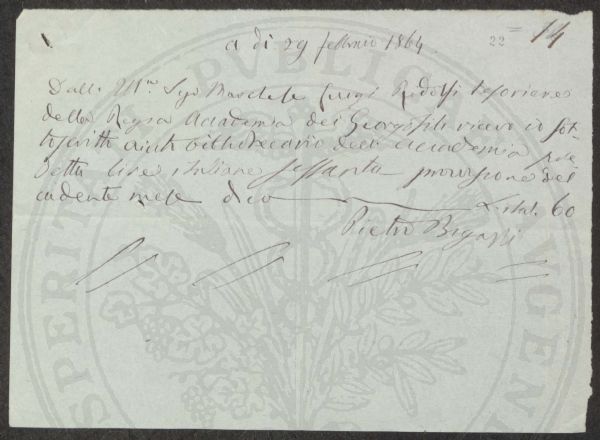 22 = 14
a dì 29 febbraio 1864
Dall' Ill.mo Sigr Marchese Luigi Ridolfi tesoriere
della Regia Accademia dei Georgofili ricevo io sot-
toscritto aiuto bibliotecario dell' Accademia pre
detta lire italiane sessanta provvisione del
cadente mese dico L. ital. 60
Pietro Bigazzi
PROSPERITATI PVBLICAE AVGENDAE